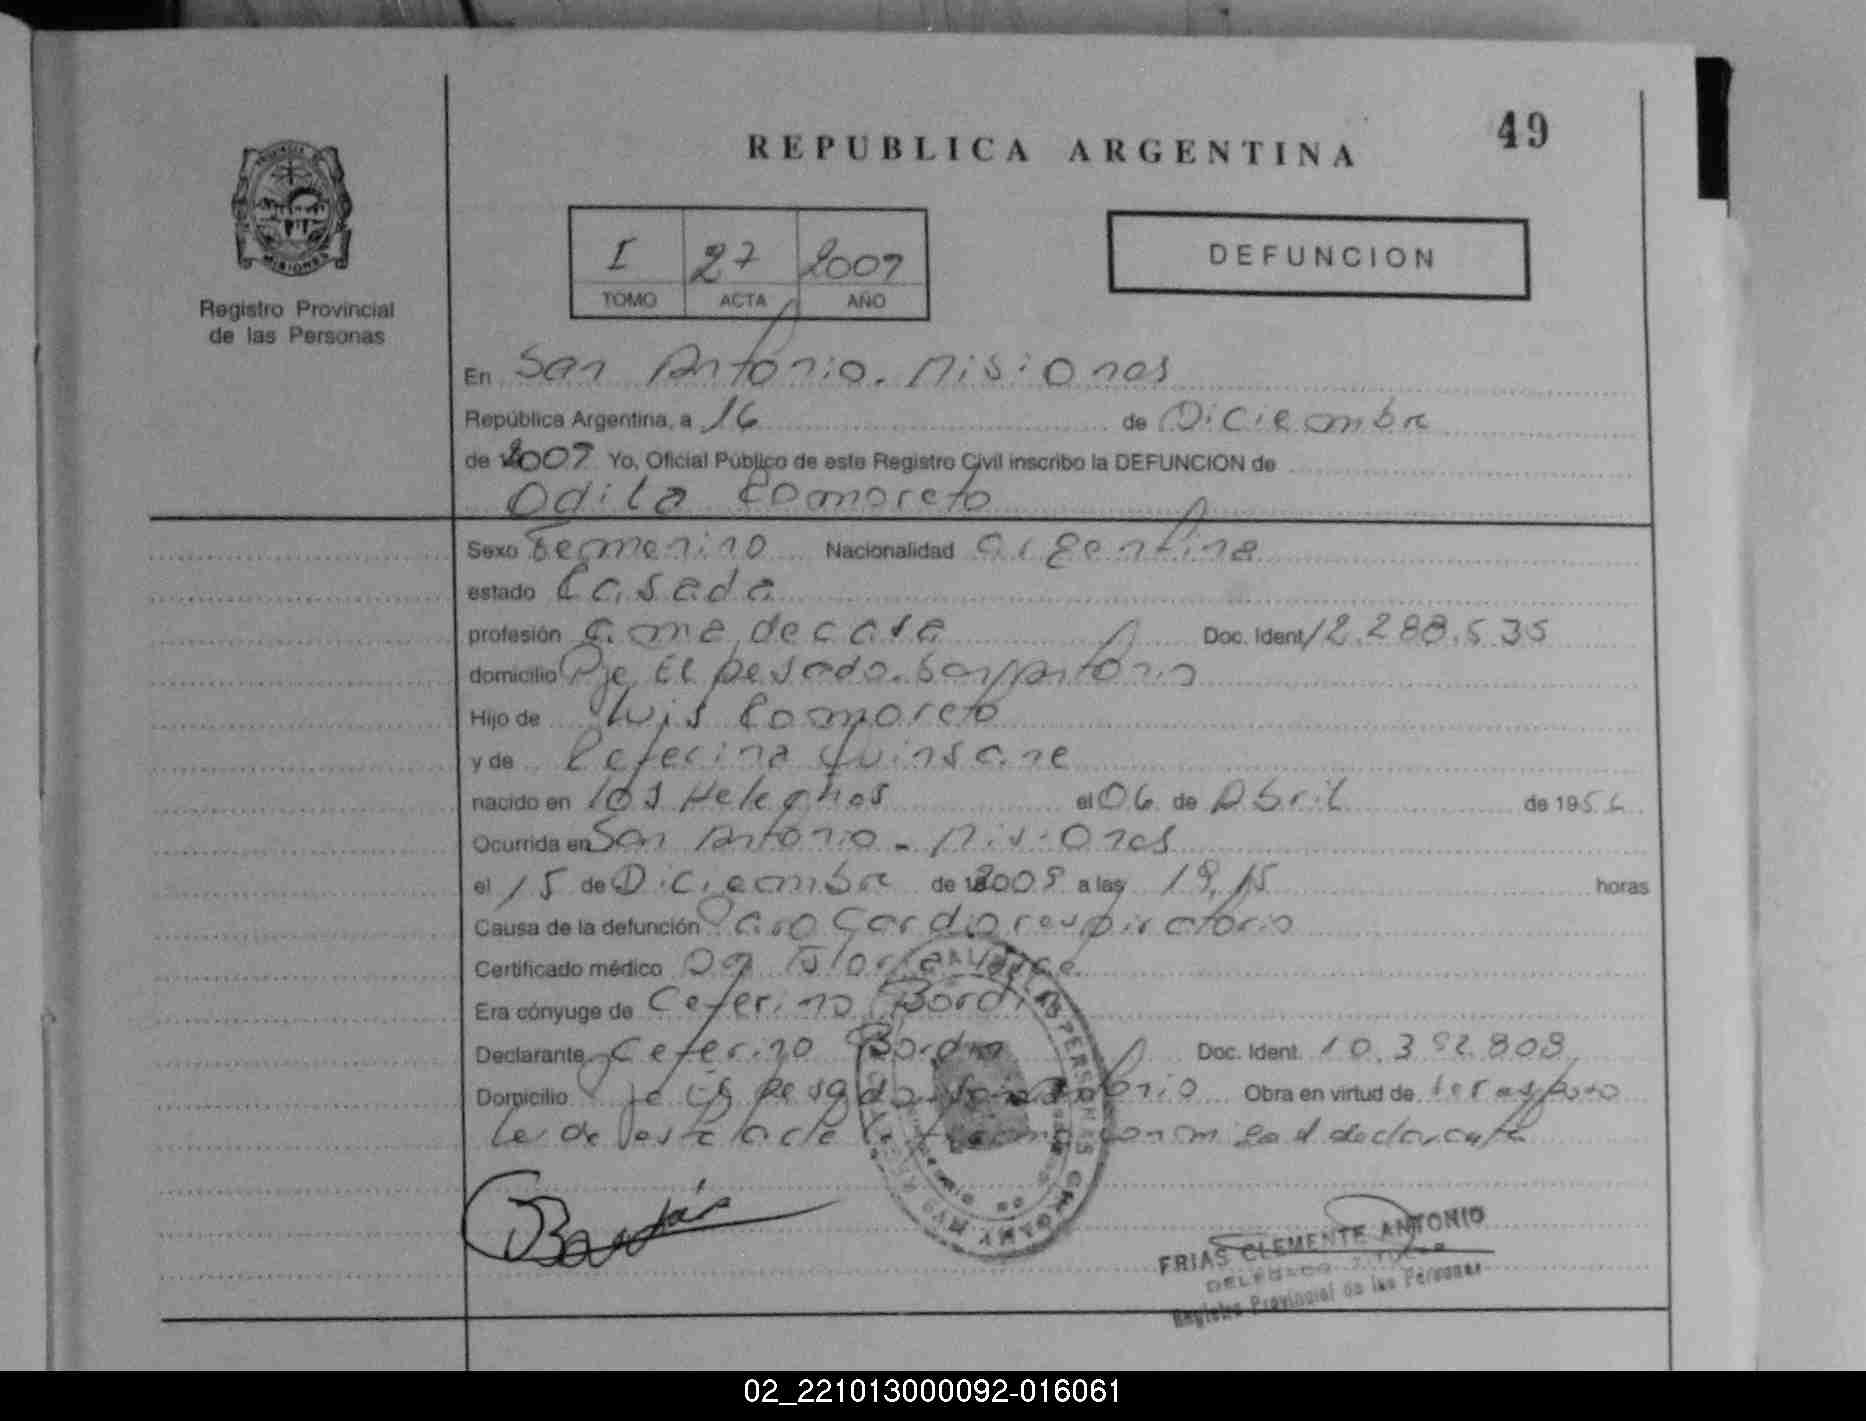 49
REPUBLICA ARGENTINA
PROVINCIA DE
MISIONES
Registro Provincial
de las Personas
I 27 2009
TOMO ACTA AÑO
DEFUNCION
En San Antonio. Misiones
República Argentina, a 16 de Diciembre
de 2009 Yo, Oficial Público de este Registro Civil inscribo la DEFUNCION de
Odila Comoreto
Sexo Femenino Nacionalidad argentina
estado Casada
profesión ama de casa Doc. Ident 12.288.535
domicilio Pje El pesado. San Antonio
Hijo de Luis Comoreto
y de Ceferina
nacido en los Helechos el 06 de Abril de 195
Ocurrida en San Antonio - Misiones
el 15 de Diciembre de 2009 a las 19,15 horas
Causa de la defunción Paro Cardiorespiratorio
Certificado médico
Era cónyuge de Ceferino
Declarante Ceferino Doc. Ident. 10.392.809
Domicilio Pje El pesado San Antonio Obra en virtud de
declarante
FRIAS CLEMENTE ANTONIO
DELEGADO TITULAR
Registro Provincial de las Personas
02_221013000092-016061